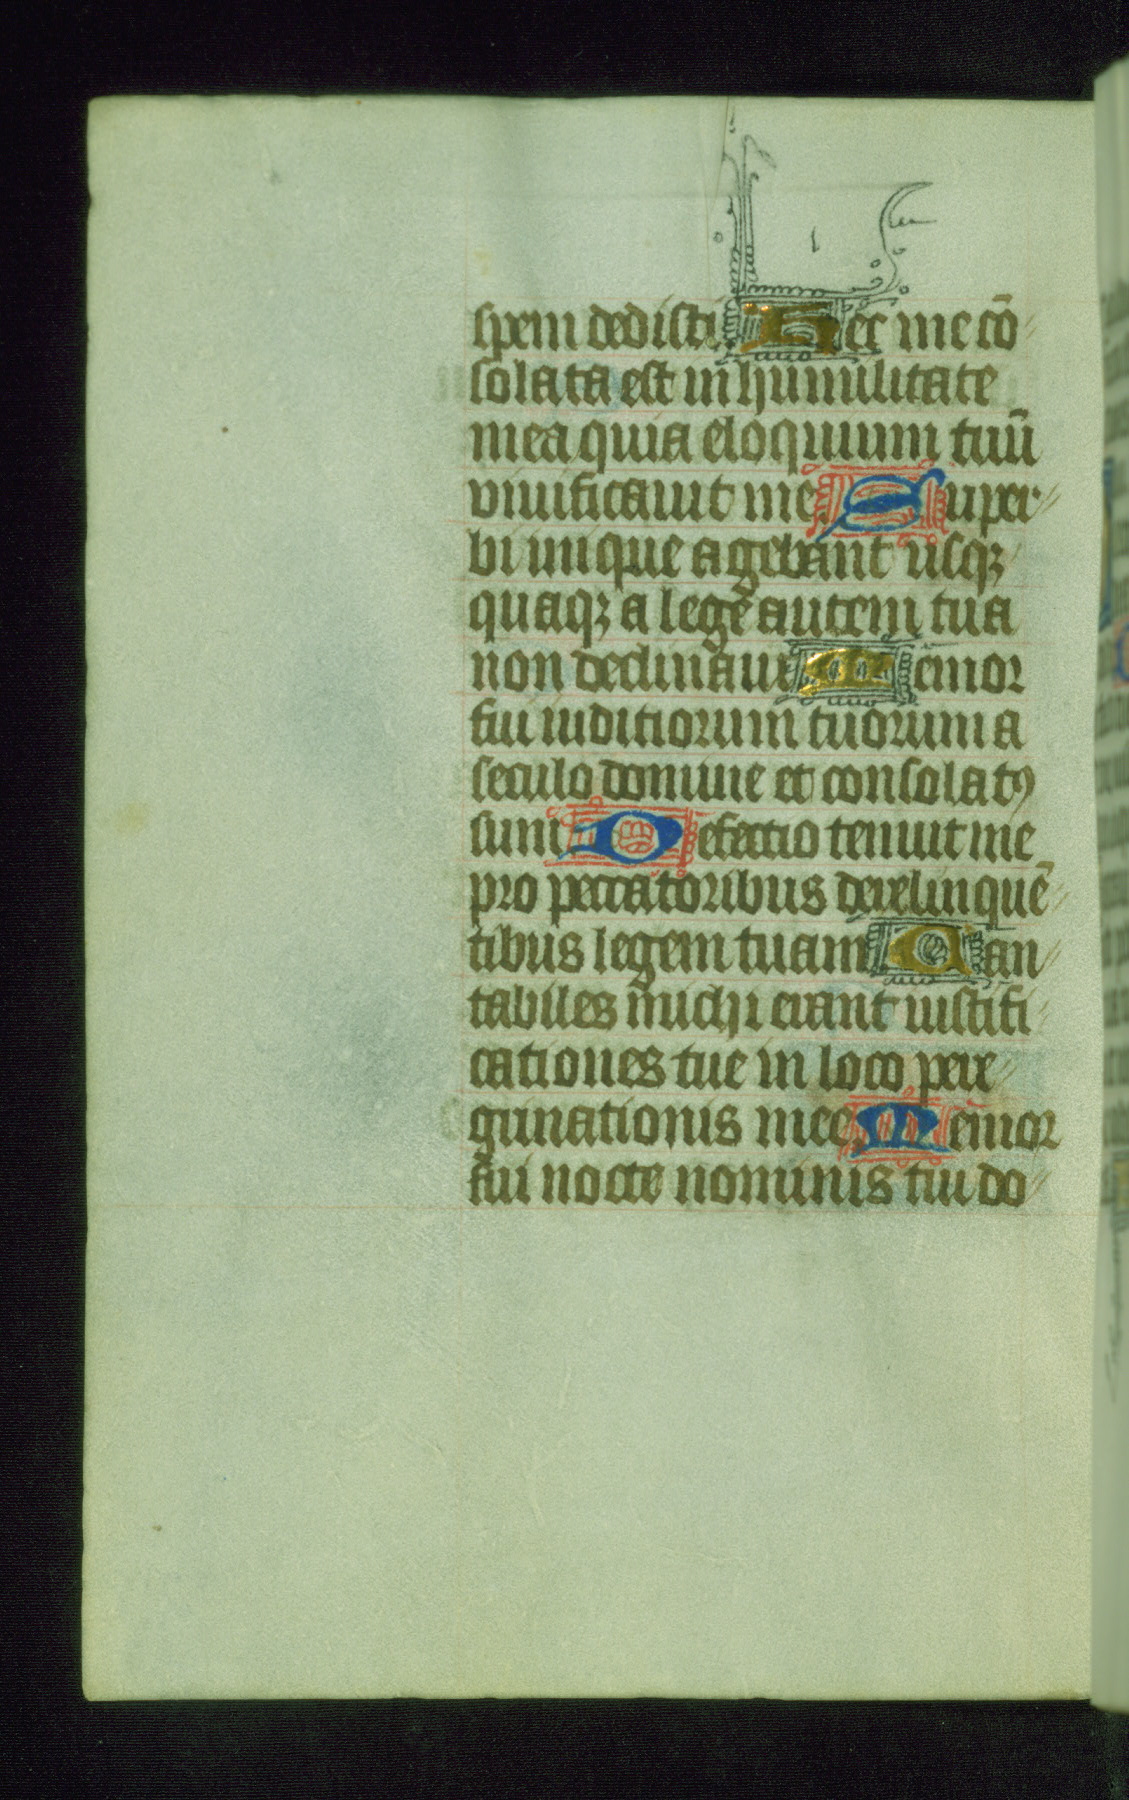 spem dedisti Hec me cō
solata est in humilitate
mea quia eloquium tuū
viuificauit me Super
bi inique agebant usqꝫ
quaqꝫ a lege autem tua
non declinaui Memor
fui iuditiorum tuorum a
seculo domine et consolatꝰ
sum Defectio tenuit me
pro peccatoribus derelinquē
tibus legem tuam Can
tabiles michi erant iustifi
cationes tue in loco pere
grinationis mee Memor
fui nocte nominis tui do